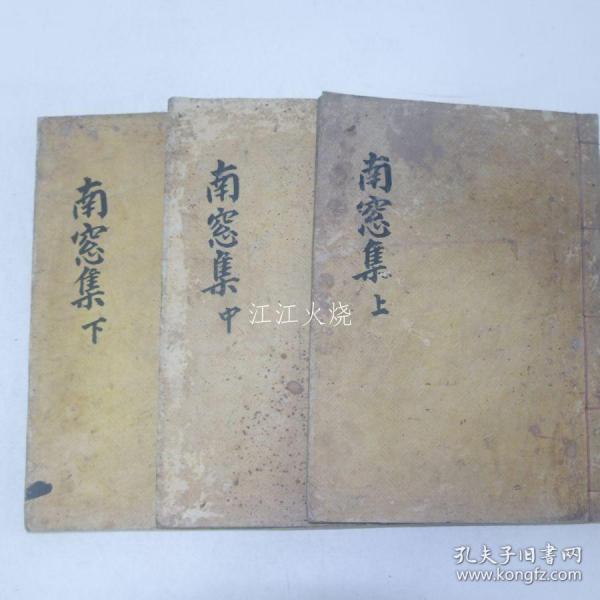 南窓集
上
南窓集
中
南窓集
下
江江火烧
孔夫子旧書网
www.kongfz.com